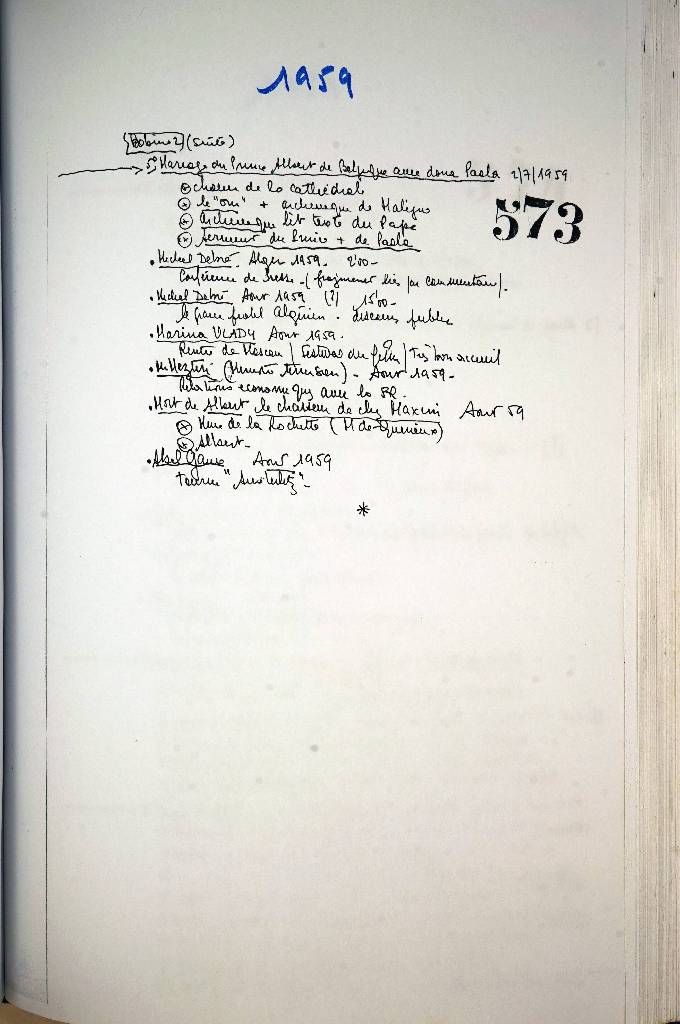 1959
Bobine 2 (suite)
5° Mariage du Prince Albert de Belgique avec dona Paola 2/7/1959
chœur de la cathédrale
le "oui" + archevêque de Malines
573
Archevêque lit texte du Pape
serment du Prince + de Paola
. Michel Debré Alger 1959. 2'00 -
Conférence de Presse - (fragments liés par commentaire).
. Michel Debré Aout 1959 (?) 15'00 -
le problème Algérien . discours public
. Marina VLADY Aout 1959.
Rentre de Moscou / Festival du film / Très bon accueil
(Ministre tunisien) - Aout 1959 -
Relations économiques avec la
. Mort de Albert le chasseur de chez Maxim Aout 59
de la Rochette (M de
Albert -
. Abel Gance Aout 1959
tourne "Austerlitz" -
*